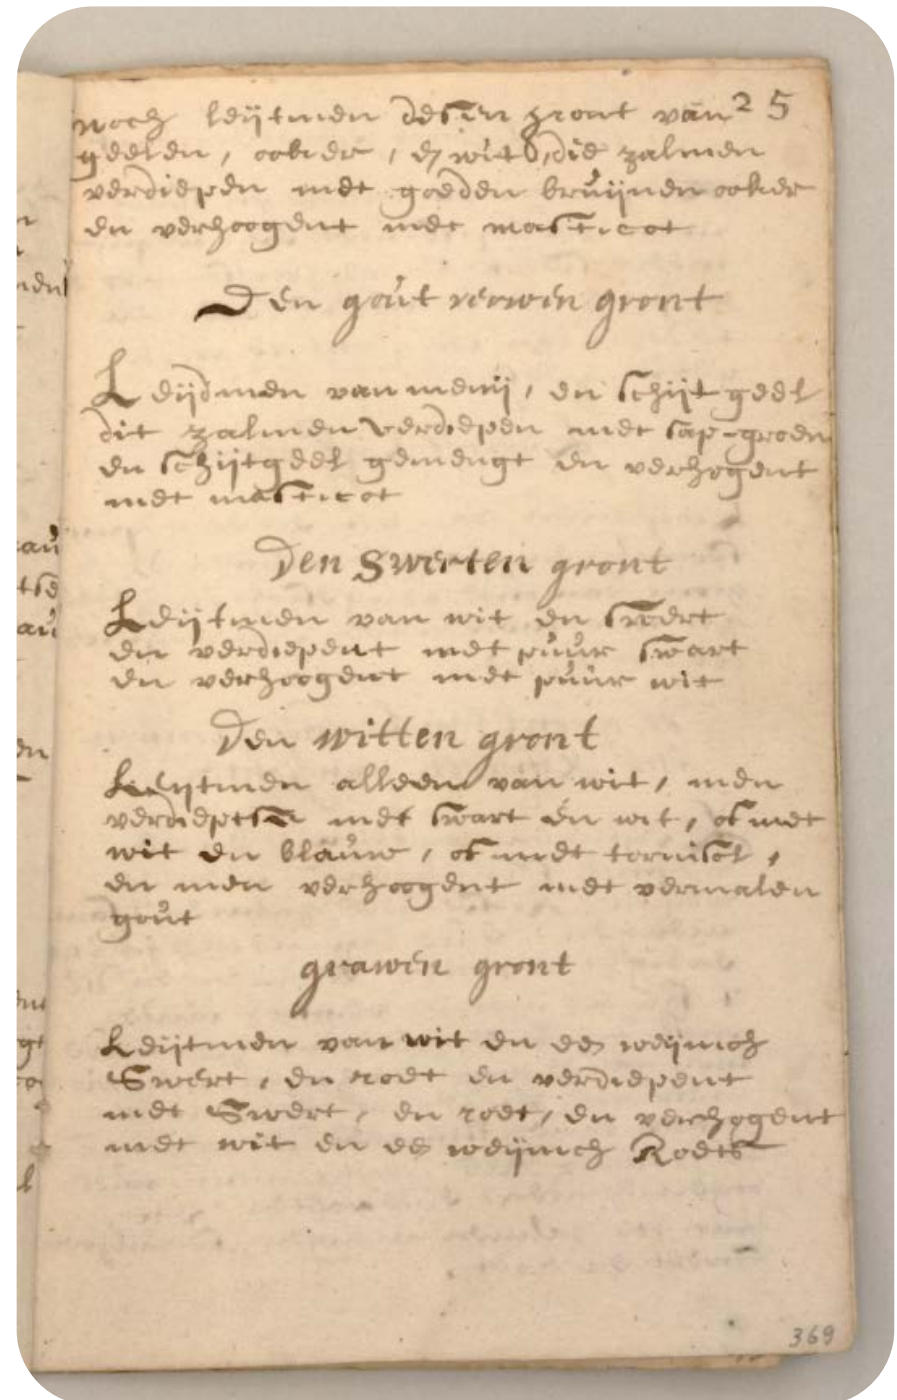 noch leijtmen desen gront van 25
geelen, ooker, en wit, die zalmen
verdiepen met goeden bruijnen ooker
en verhoogent met masticot
Den gout verwen gront
Leijdmen van menij, en schijt geel
dit zalmen verdiepen met sap-groen
en schijtgeel gemengt en verhogent
met masticot
Den Swerten gront
Leijtmen van wit en swert
en verdiepent met puur swart
en verhoogent met puur wit
Den witten gront
Leijtmen alleen van wit, men
verdieptse met swart en wit, of met
wit en blauw, of met tornisol,
en men verhoogent met vermalen
gout
grawen gront
Leijtmen van wit en een weijnich
Swert, en roet en verdiepent
met Swert, en roet, en verhogent
met wit en een weijnich Roets
369